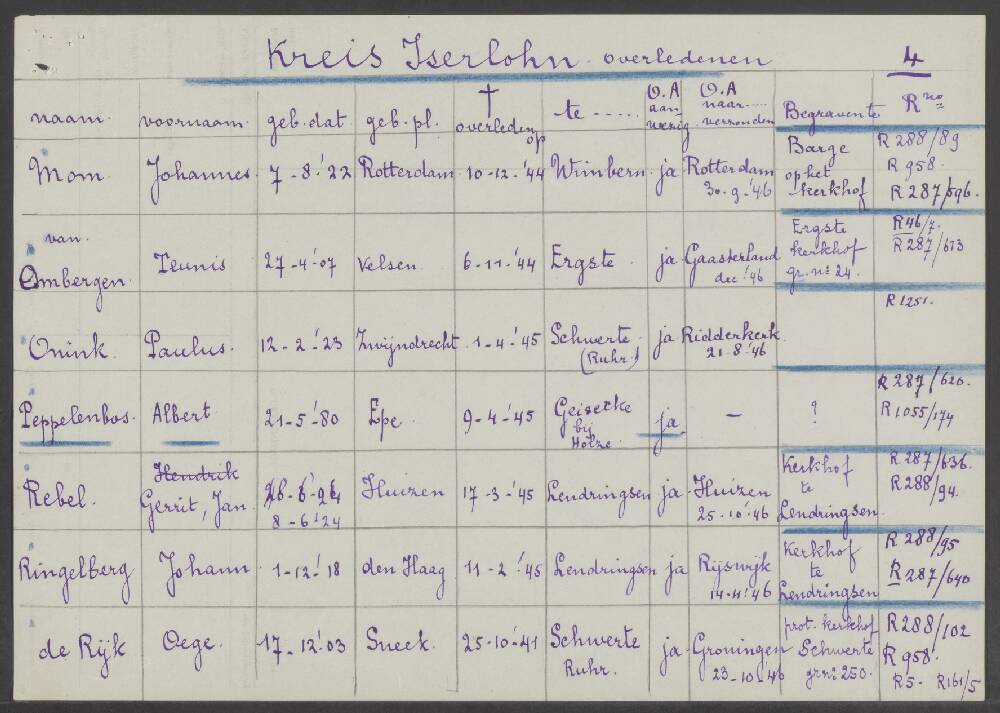 Kreis Iserlohn overledenen 4
naam. voornaam. geb. dat. geb. pl. † overleden op te ..... O.A aanwezig O.A naar.... verzonden Begraven te R no
Mom. Johannes. 7-8-'22 Rotterdam. 10-12-'44 Wimbern. ja Rotterdam 30-9-'46 Barge op het kerkhof R 288/89 R 958. R 287/596.
van Ombergen. Teunis 27-4-'07 Velsen. 6-11-'44 Ergste. ja Gaasterland dec '46 Ergste kerkhof gr. no 24. R46/7. R 287/613
Onink. Paulus. 12-2-'23 Zwijndrecht. 1-4-'45 Schwerte (Ruhr.) ja Ridderkerk 21-8-'46 R 1251.
Peppelenbos. Albert 21-5-'80 Epe. 9-4-'45 Geisecke bij Holze. ja - ? R 287/620. R 1055/174
Rebel. Hendrik Gerrit, Jan. 8-6-'24 Huizen 17-3-'45 Lendringsen ja Huizen 25-10-'46 Kerkhof te Lendringsen. R 287/636. R 288/94.
Ringelberg Johann 1-12-'18 den Haag 11-2-'45 Lendringsen ja Rijswijk 14-11-'46 Kerkhof te Lendringsen R 288/95 R 287/640
de Rijk Oege. 17-12-'03 Sneek. 25-10-'41 Schwerte Ruhr. ja Groningen 23-10-'46 prot. kerkhof Schwerte gr no 250. R 288/102 R 958. R5- R161/5